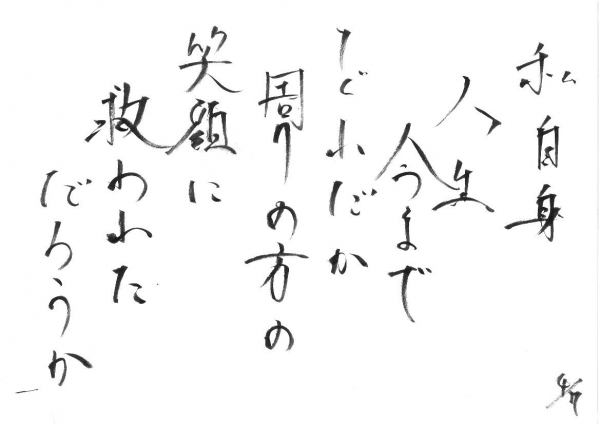 私自身
人生
今まで
どれだか
周りの方の
笑顔に
救われた
だろうか